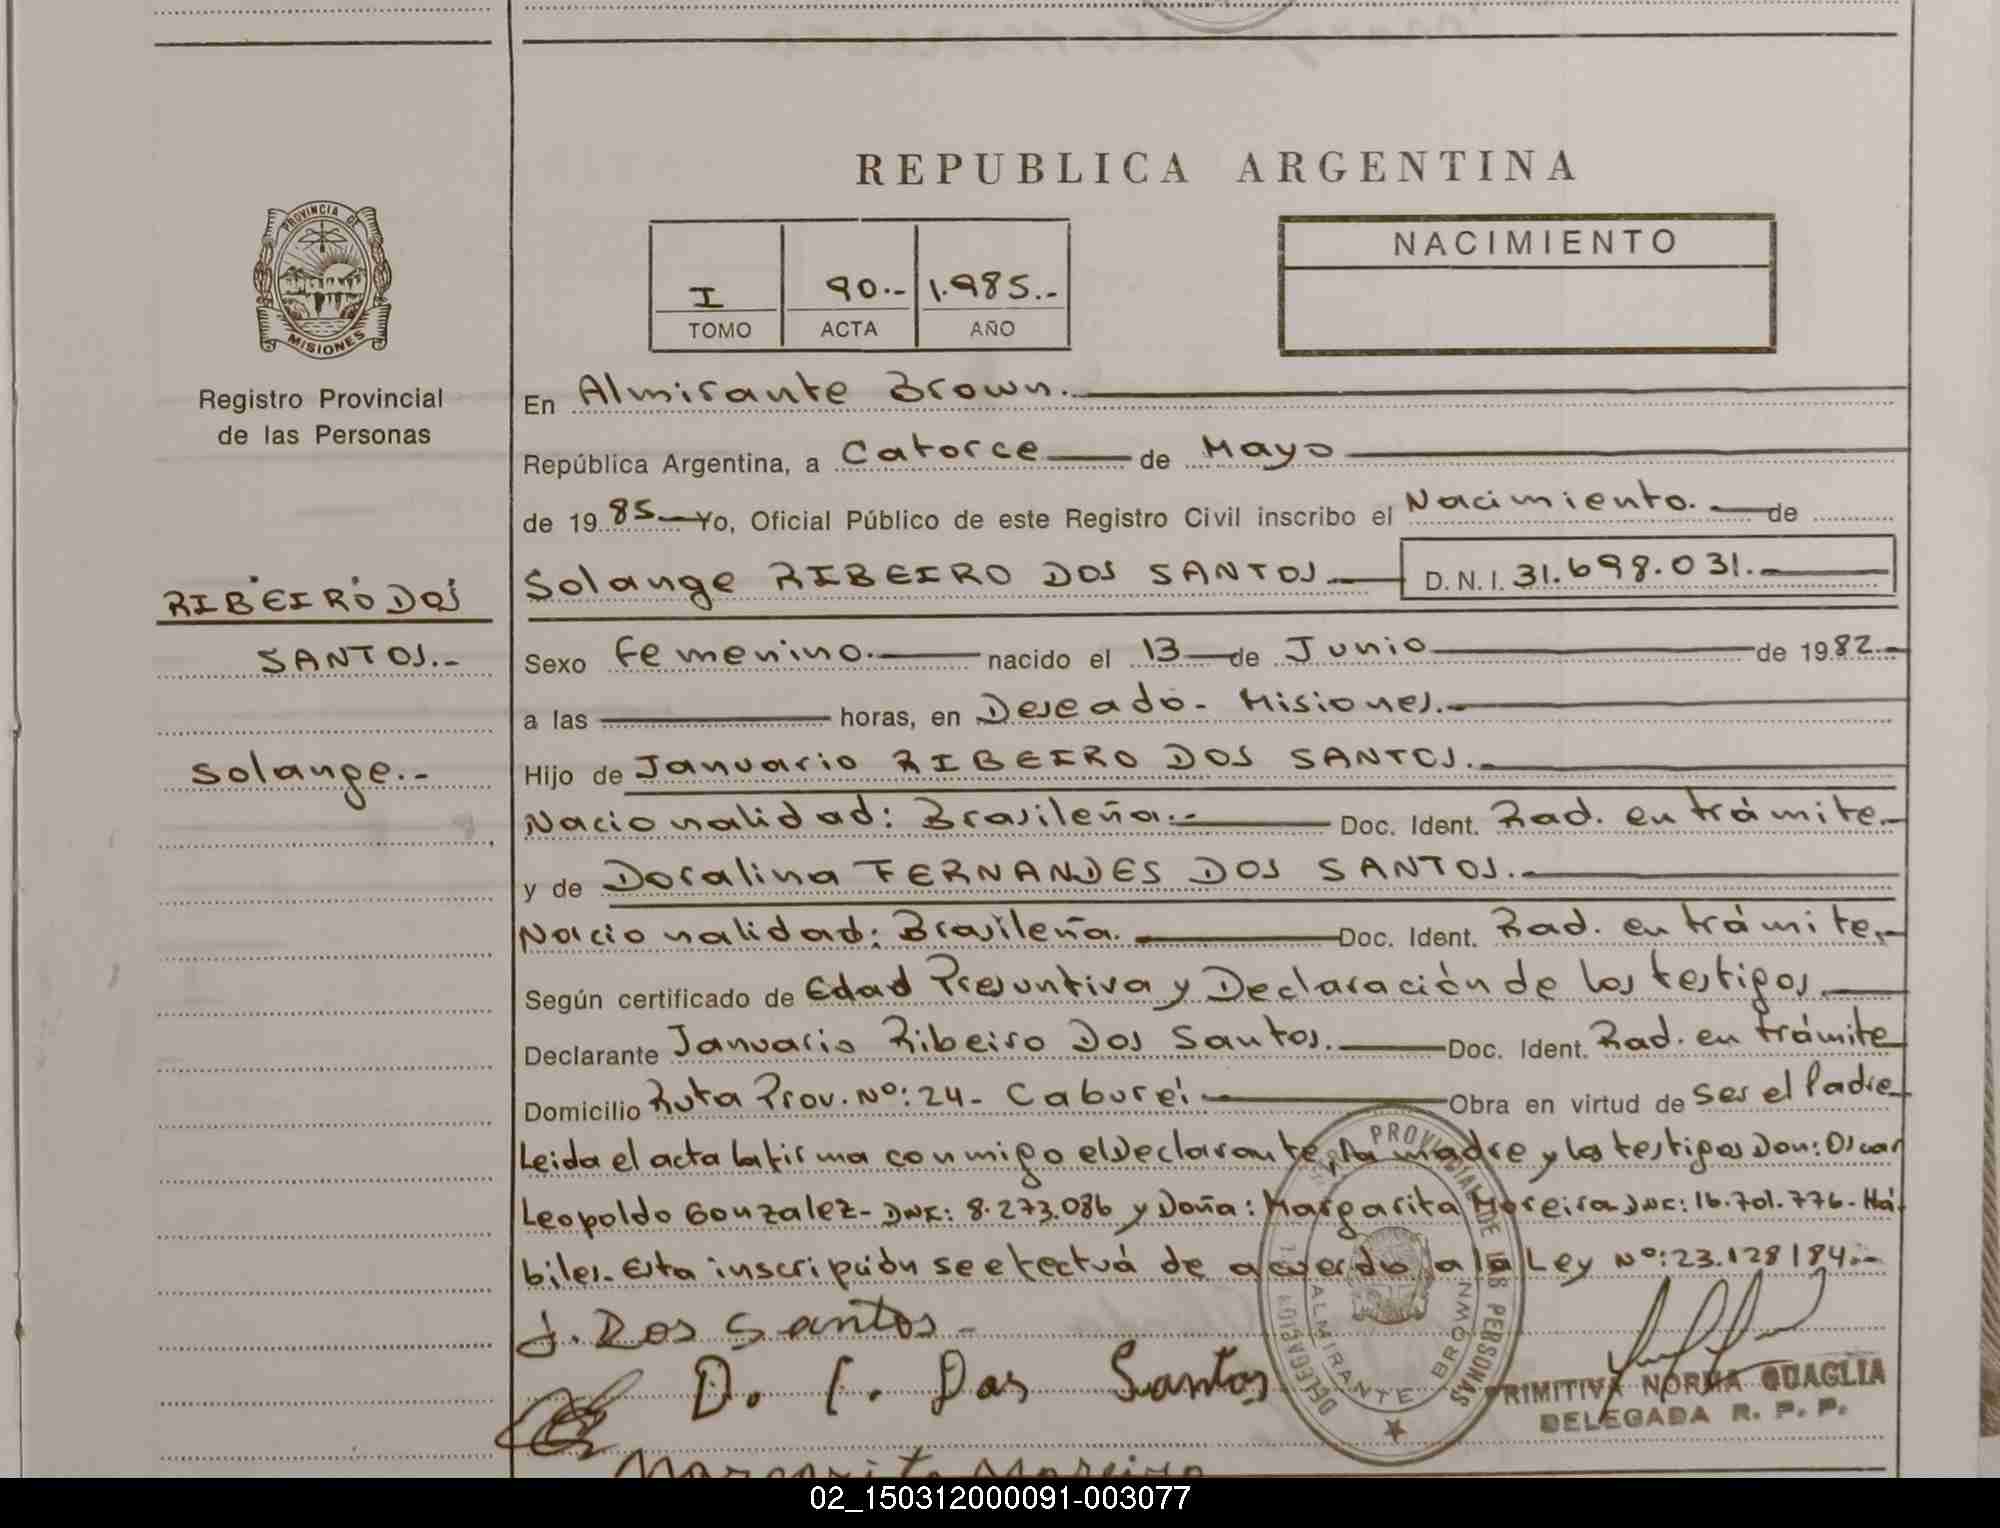 REPUBLICA ARGENTINA
PROVINCIA DE
MISIONES
Registro Provincial
de las Personas
I 90.- 1.985.-
TOMO ACTA AÑO
NACIMIENTO
En Almirante Brown.
República Argentina, a Catorce de Mayo
de 1985 Yo, Oficial Público de este Registro Civil inscribo el Nacimiento. de
Solange RIBEIRO DOS SANTOS D.N.I. 31.698.031.
RIBEIRO DOS
SANTOS.-
Solange.-
Sexo Femenino. nacido el 13 de Junio de 1982.-
a las horas, en Deseado - Misiones.-
Hijo de Januario RIBEIRO DOS SANTOS.
Nacionalidad: Brasileña.- Doc. Ident. Rad. en trámite.-
y de Doralina FERNANDES DOS SANTOS.
Nacionalidad: Brasileña. Doc. Ident. Rad. en trámite.-
Según certificado de Edad Presuntiva y Declaración de los testigos.
Declarante Januario Ribeiro Dos Santos. Doc. Ident. Rad. en trámite
Domicilio Ruta Prov. Nº: 24 - Caburei Obra en virtud de ser el Padre
Leida el acta la firma conmigo el Declarante, la madre y los testigos Don: Oscar
Leopoldo Gonzalez - DNI: 8.273.086 y Doña: Margarita Moreira DNI: 16.701.776 - Há-
biles. Esta inscripción se efectuá de acuerdo a la Ley Nº: 23.128/84.-
J. Dos Santos -
D. Dos Santos
Margarita Moreira
PROVINCIAL DE LAS PERSONAS
DELEGACION
ALMIRANTE BROWN
PRIMITIVA NORMA QUAGLIA
DELEGADA R. P. P.
02_150312000091-003077